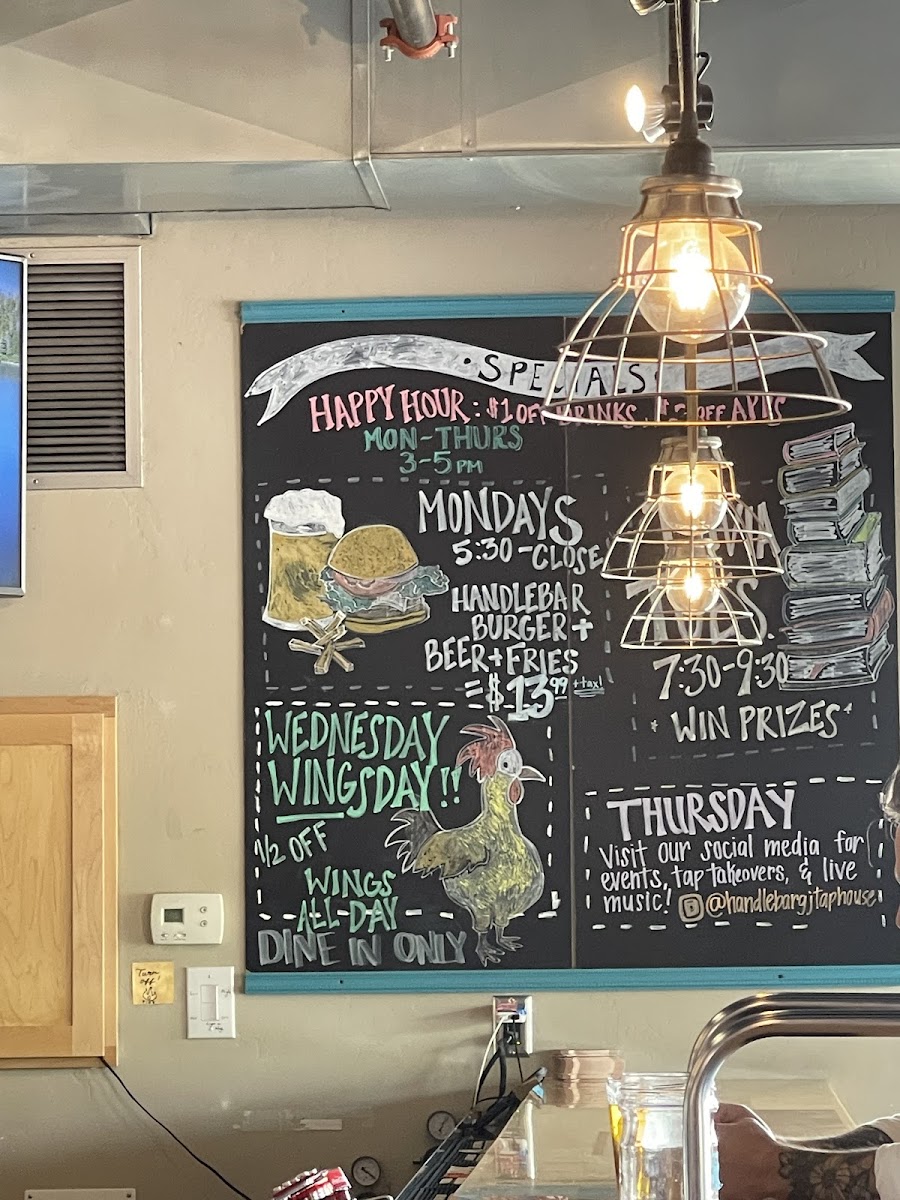 • SPECIALS •
HAPPY HOUR : $1 OFF DRINKS, OFF APPS
MON-THURS
3-5 PM
MONDAYS
5:30 -CLOSE
HANDLEBAR
BURGER +
BEER + FRIES
= $13.99 + tax!
WEDNESDAY
WINGSDAY !!
1/2 OFF
WINGS
ALL-DAY
DINE IN ONLY
7:30-9:30
* WIN PRIZES *
THURSDAY
Visit our social media for
events, tap takeovers, & live
music! @handlebargjtaphouse
Turn
off!